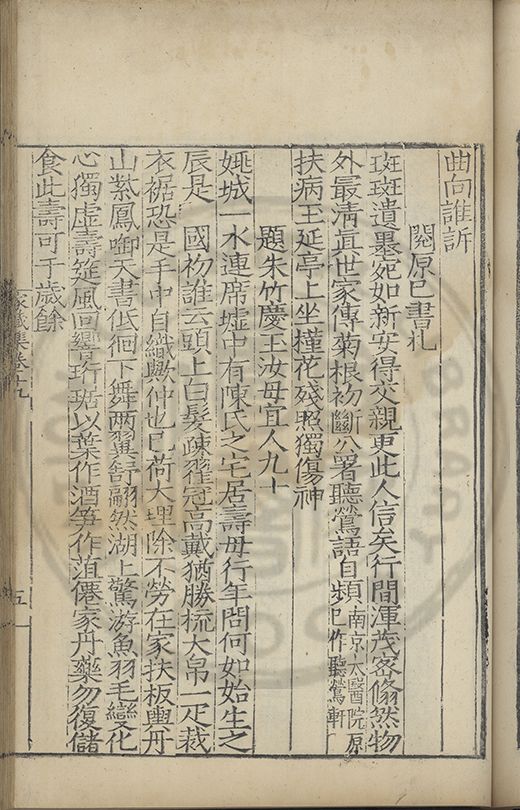 曲向誰訴
閱原巳書札
斑斑遺墨宛如新安得交親更此人信矣行間渾茂密翛然物
外最清眞世家傳菊根初斷公署聽鶯語自頻南京大醫院原巳作聽鶯軒
扶病王延亭上坐槿花殘照獨傷神
題朱竹慶王汝毋宜人九十
姚城一水連席墟中有陳氏之宅居壽毋行年問何如始生之
辰是 國初誰云頭上白髮疎翟冠高戴猶勝梳大帛一疋裁
衣裾恐是手中自織歟仲也已荷大理除不勞在家扶板輿丹
山紫鳳啣天書低徊下舞兩翼舒翩然湖上驚游魚羽毛變化
心獨虛壽筵風回響珩琚以葉作酒笋作菹僊家丹藥勿復儲
食此壽可千歲餘
家藏集卷十五
五